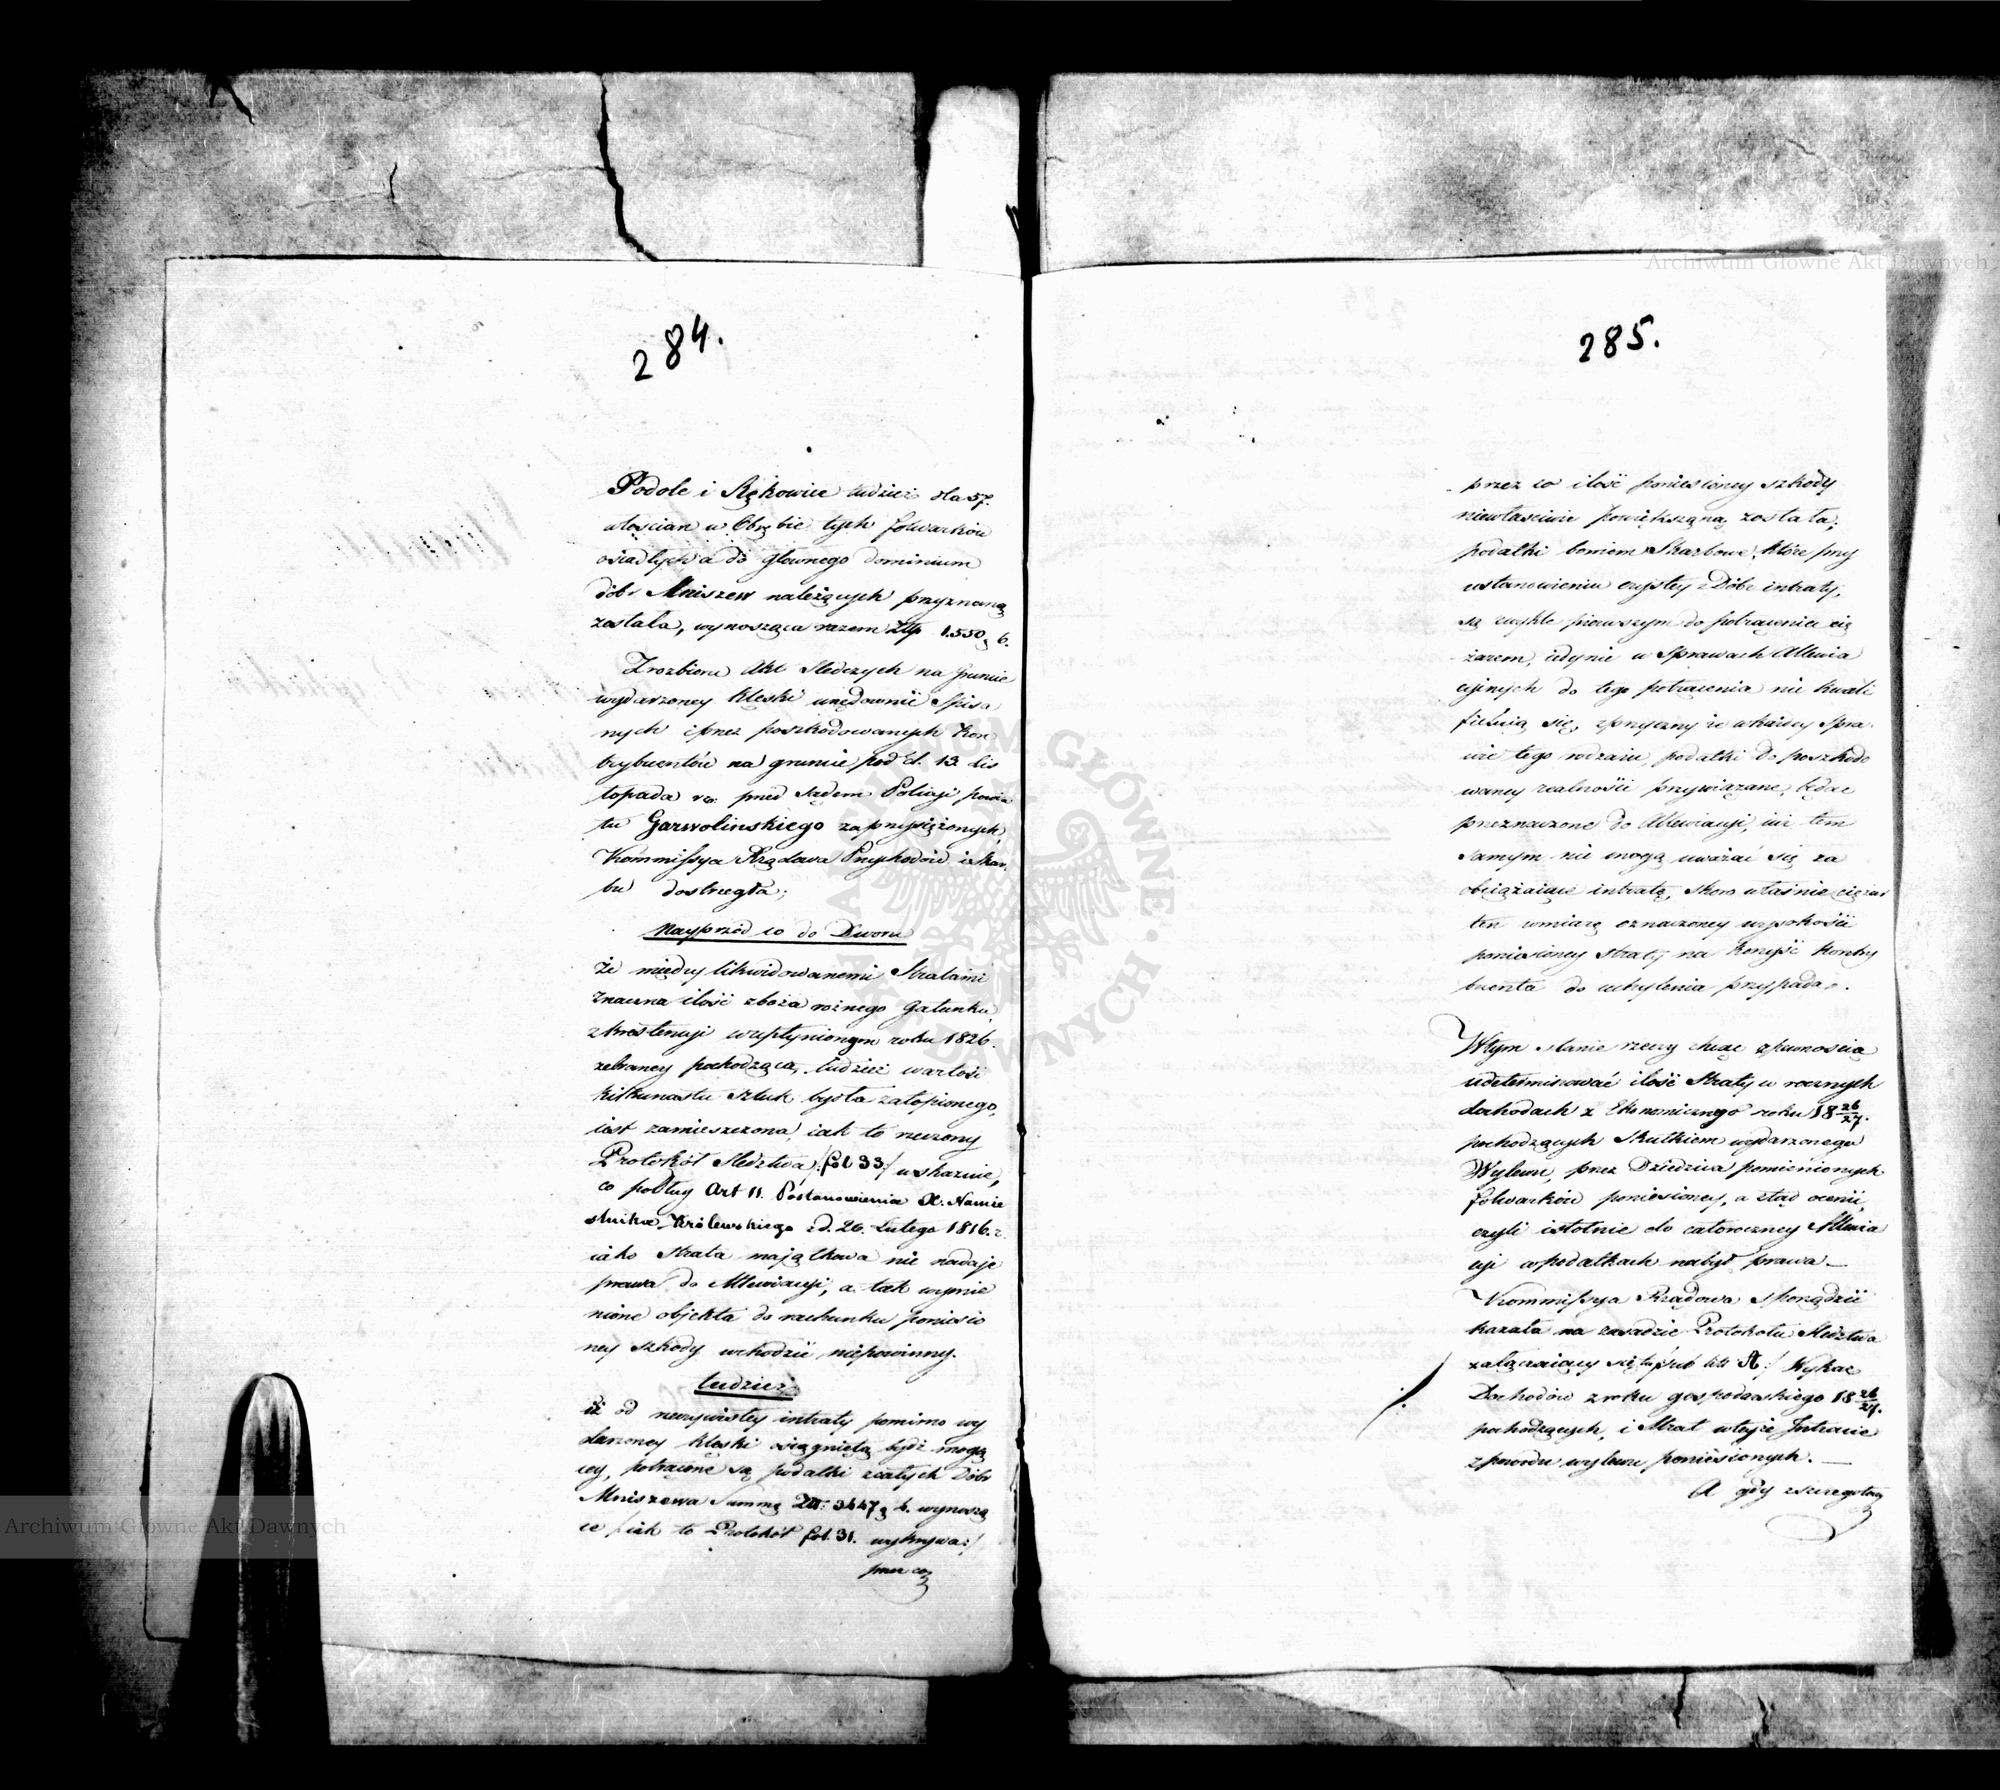 284.
Podole i Rękowice tudzież dla 57.
włościan w Obrębie tych folwarków
osiadłych a do głownego dominium
dóbr Mniszew należących przyznaną
została, wynosząca razem Złp 1.550 g 6.
Z rozbioru Akt Sledczych na gruncie
wydarzoney klęski urzędownie Spisa
nych i przez poszkodowanych Kon
trybuentów na gruncie pod d. 13 Lis
topada r.z. przed Sądem Policyi powia
tu Garwolinskiego zaprzysiężonych,
Kommissya Rządowa Przychodów i Skar
bu dostrzegła;
Nayprzód co do Dworu
że między likwidowanemi Stratami
znaczna ilość zboża rożnego gatunku,
z krestencyi w upłynionym roku 1826.
zebraney pochodząca, tudzież wartość
kilkunastu sztuk bydła zatopionego,
iest zamieszczona, iak to rzeczony
Protokół Sledztwa /: fol 33 :/ wskazuie,
co podług Art 11. Postanowienia X. Namie
stnika Królewskiego z d. 26. Lutego 1816. r.
iako Strata maiątkowa nie nadaje
prawa do Allewiacyi, a tak wymie
nione objekta do rachunku poniesio
ney szkody wchodzić niepowinny.
tudzież
iż od rzeczywistey intraty pomimo wy
darzoney klęski osiągniętą bydź mogą
cey, potrącone są podatki z całych Dóbr
Mniszewa Summę Złt: 3447 g 4. wynoszą
ce / iak to Protokół fol. 31. wykrywa :/
przez co
285.
przez co ilość poniesioney szkody
niewłasciwie powiększoną została,
podatki bowiem Skarbowe, które przy
ustanowieniu czystey z Dóbr intraty,
są zwykle pierwszym do potrącenia cię
żarem, iedynie w Sprawach Allewia
cyinych do tego potrącenia nie kwali
fikuią się, z przyczyny że w każdey Spra
wie tego rodzaiu, podatki do poszkodo
waney realności przywiązane, będąc
przeznaczone do Allewiacyi, iuż tem
samym nie mogą uważać się za
obciążaiące intratę, skoro właśnie ciężar
ten w miarę oznaczoney wysokości
poniesioney straty na korzyść Kontry
buenta do uchylenia przypada.
W tym stanie rzeczy chcąc z pewnością
udeterminować ilość Straty w rocznych
dochodach z Ekonomicznego roku 18 26/27.
pochodzących skutkiem wydarzonego
Wylewu, przez Dziedzica pomienionych
folwarków poniesioney, a ztąd ocenić,
czyli istotnie do całoroczney Allewia
cyi w podatkach nabył prawa —
Kommissya Rządowa sporządzić
kazała na zasadzie Protokołu Sledztwa
załączaiący się tu pod lit: A :/ Wykaz
Dochodów z roku gospodarskiego 18 26/27.
pochodzących, i Strat w teyże Intracie
z powodu wylewu poniesionych. —
A gdy z szczegołow